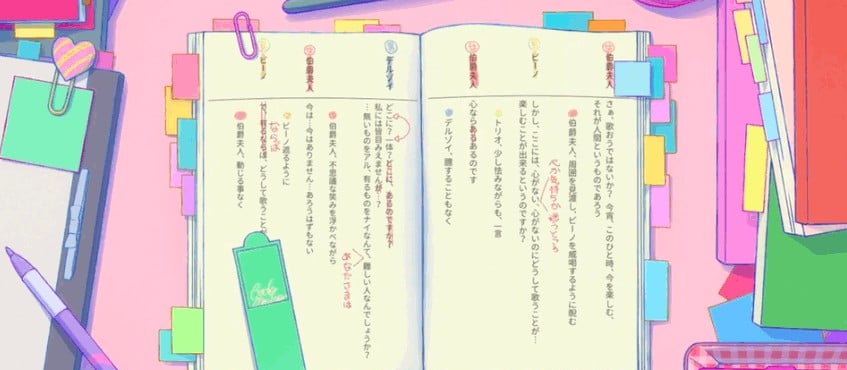 伯爵夫人
さぁ、歌おうではないか? 今宵、このひと時、今を楽しむ、
それが人間というものであろう
伯爵夫人、周囲を見渡し、ピーノを威嚇するように睨む
ピーノ
しかし、ここには、心がない、心がないのにどうして歌うことが…
楽しむことが出来るというのですか?
トリオ、少し怯みながらも、一言
伯爵夫人
心ならあるあるのです
デルソイ、臆することもなく
デルソイ
どこに?一体?どこに、あるのですか?
私には皆目みえませんが…?
…無いものをアル、有るものをナイなんて、難しい人なんでしょうか?
伯爵夫人、不思議な笑みを浮かべながら
伯爵夫人
今は…今はありません…あろうはずもない
ピーノ遮るように
ピーノ
有るならば、どうして歌うこと
ならば
伯爵夫人、動じる事なく